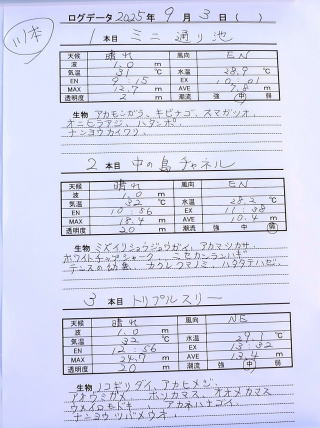 川本
ログデータ 2025年 9月 3日 ( )
1本目 ミニ通り池
天候 晴れ 風向 EN
波 1.0 m
気温 31 ℃ 水温 28.9 ℃
EN 9:15 EX 10:01
MAX 12.7 m AVE 9.8 m
透明度 2 m 潮流 強 中 弱
生物 アカモンガラ、キビナゴ、スマガツオ、
オニヒラアジ、ハタンポ、
ナンヨウカイワリ、
2本目 中の島チャネル
天候 晴れ 風向 EN
波 1.0 m
気温 32 ℃ 水温 28.2 ℃
EN 10:56 EX 11:38
MAX 18.4 m AVE 10.4 m
透明度 20 m 潮流 強 中 弱
生物 ミズイリショウジョウガイ、アカマツカサ、
ホワイトチップシャーク、ニセカンランハギ、
テンスの幼魚、カクレクマノミ、ハタタテハゼ、
3本目 トリプルスリー
天候 晴れ 風向 NE
波 1.0 m
気温 32 ℃ 水温 29.1 ℃
EN 12:56 EX 13:32
MAX 24.7 m AVE 13.4 m
透明度 20 m 潮流 強 中 弱
生物 ノコギリダイ、アカヒメジ、
アオウミガメ、ホソカマス、オオメカマス
ウメイロモドキ アカネハナゴイ
ナンヨウツバメウオ、